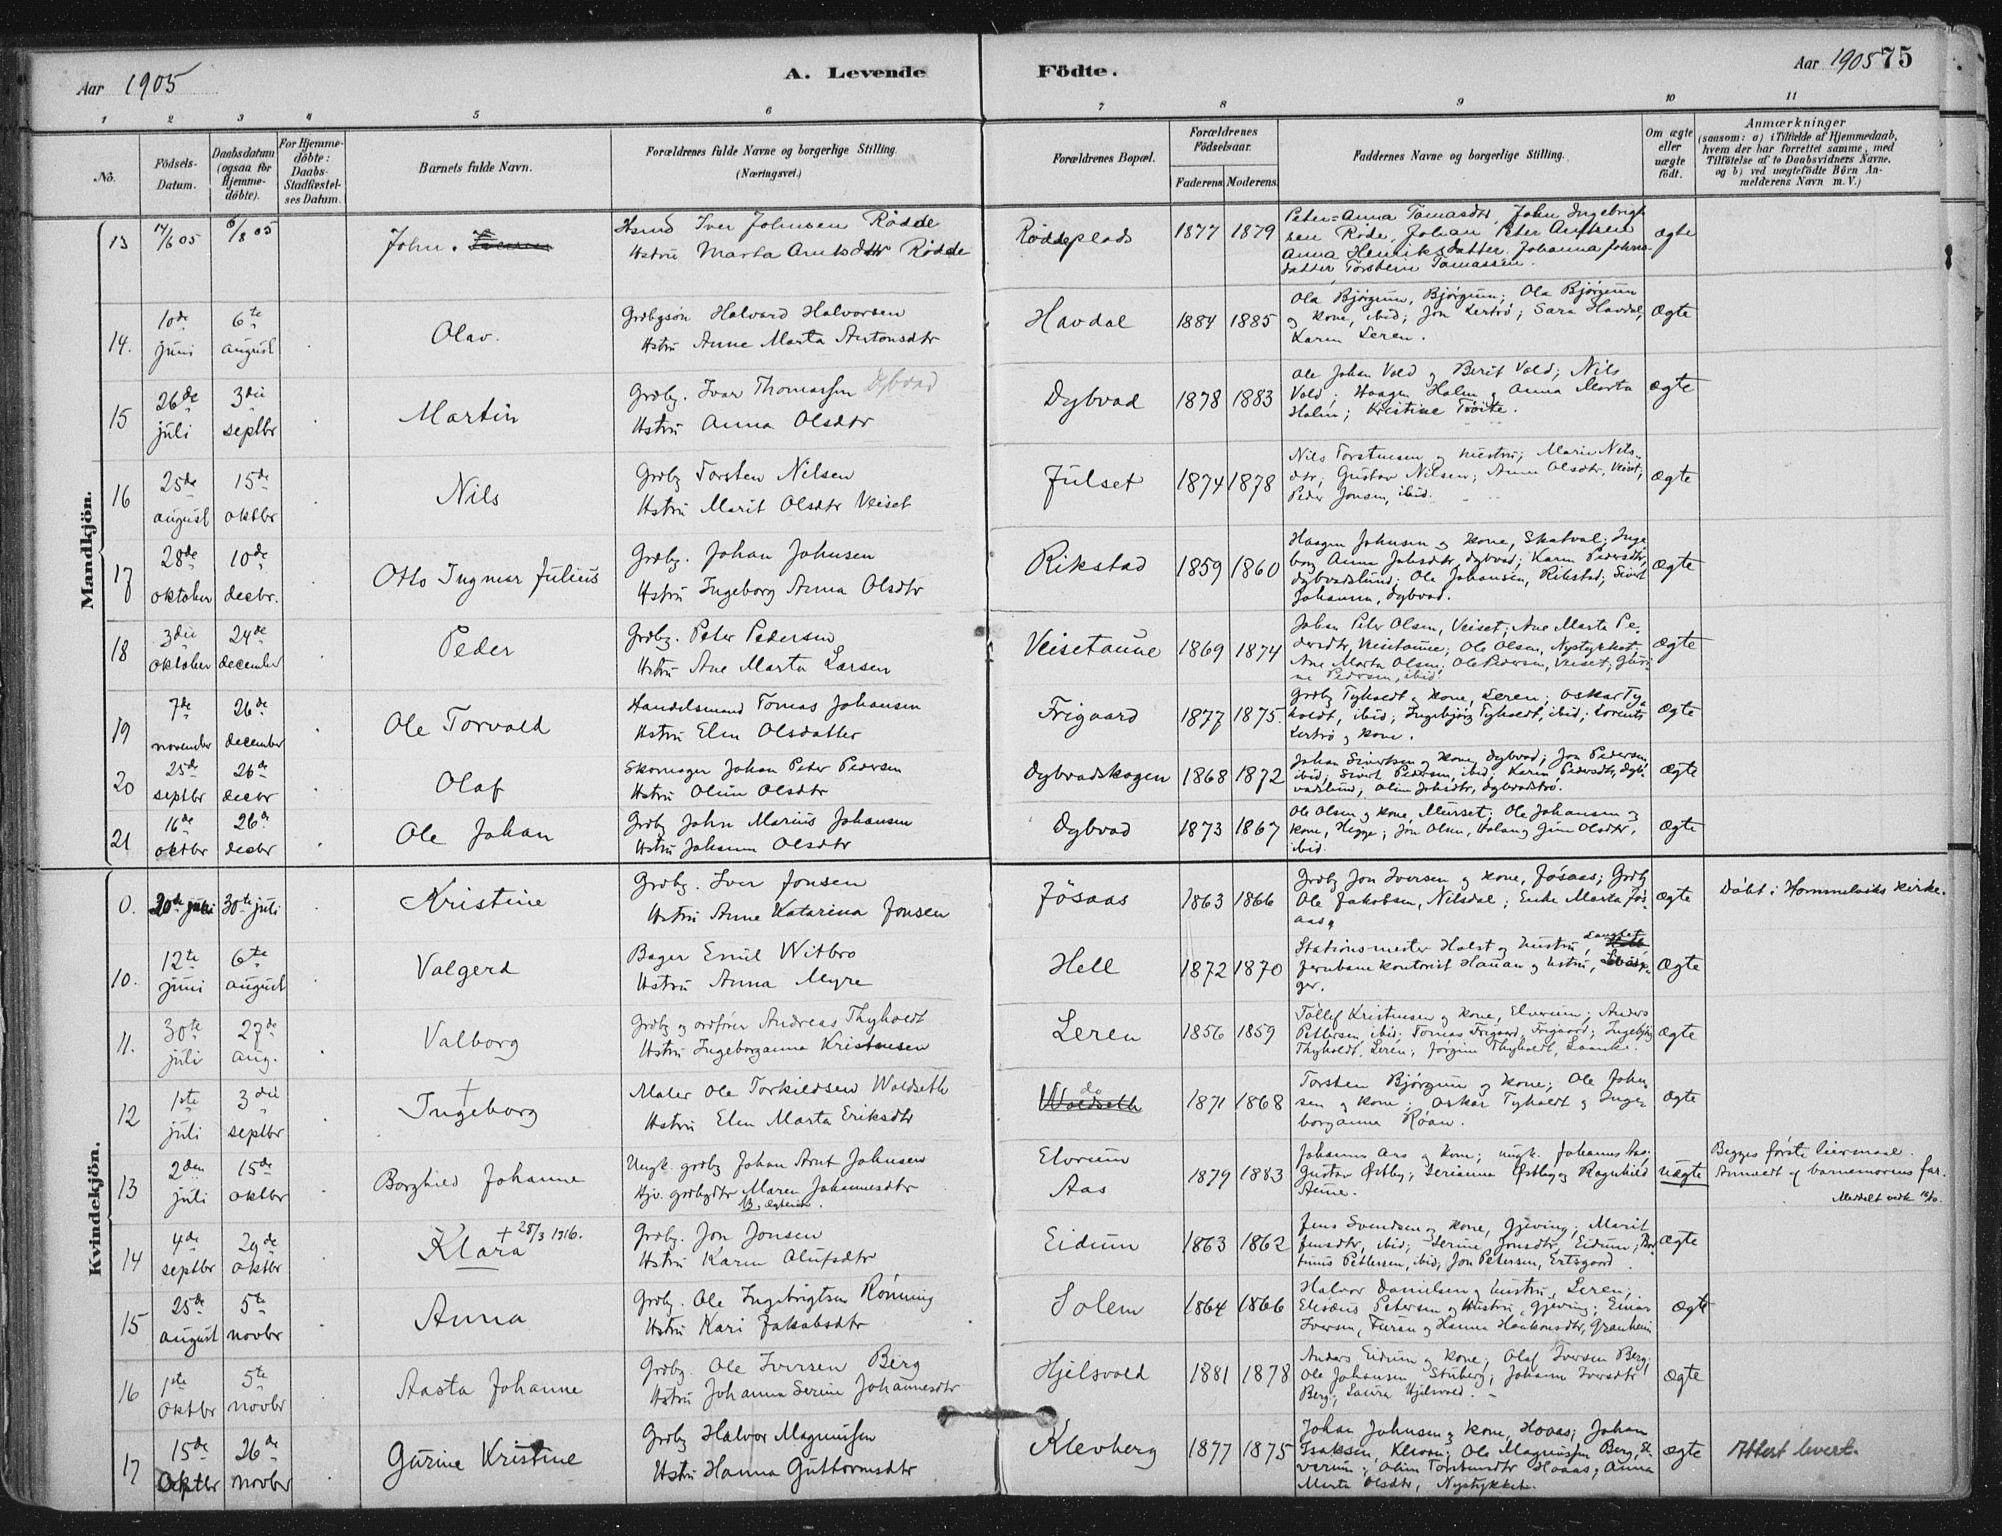 Aar 1905 A. Levende Födte. Aar 1905 75
1 2 3 4 5 6 7 8 9 10 11
Nō. Födsels-Datum. Daabsdatum (ogsaa for Hjemme-döbte). For Hjemme-döbte: Daabs-Stadfæstel-ses Datum. Barnets fulde Navn. Forældrenes fulde Navne og borgerlige Stilling. (Næringsvei.) Forældrenes Bopæl. Forældrenes Födselsaar. Faderens Moderens. Faddernes Navne og borgerlige Stilling. Om ægte eller uægte födt. Anmærkninger (saasom: a) i Tilfælde af Hjemmedaab, hvem der har forrettet samme, med Tilföielse af to Daabsvidners Navne, og b) ved uægtefödte Börn An-melderens Navn m. V.)
Mandkjön.
13 14/6 05 6/8 05 John. Husmd Iver Johnsen Rødde
Hstru Marta Arntsdtr Rødde Røddeplads 1877 1879 Peter-Anna Tomasdtr, John Ingebrigt
sen Røde, Johan Peter Arntsen
Anna Henriksdatter. Johanna Johns-
datter Torstein Tomassen. ægte
14. 10de juni 6te august Olav. Grdbgsøn Halvard Halvorsen
Hstru Anne Marta Antonsdtr Havdal 1884 1885 Ola Bjørgum, Bjørgum; Ola Bjørgum
og kone, ibid; Jon Lertrø; Sara Havdal,
Karen Leren. ægte
15 26de juli 3die septbr Martin Grdbg. Ivar Thomassen Dybvad
Hstru Anna Olsdtr Dybvad 1878 1883 Ole Johan Vold og Berit Vold; Nils
Vold; Haagen Holm og Anna Marta
Holm; Kristine Tøite. ægte
16 25de august 15de oktbr Nils Grdbg Torsten Nilsen
Hstru Marit Olsdtr Veiset Julset 1874 1878 Nils Torstensen og hustru; Marie Nils-
dtr; Gustav Nilsen; Anne Olsdtr, Veiset;
Peder Jonsen, ibid. ægte
17 28de oktober 10de decbr. Otto Ingmar Julius Grdbg. Johan Johnsen
Hstru Ingeborg Anna Olsdtr Rikstad 1859 1860 Haagen Johnsen og kone, Skatval; Inge
borg Anna Johsdtr, Dybvad; Karen Pedersdtr,
Dybvadslund; Ole Johansen, Rikstad; Sivert
Johansen, Dybvad. ægte
18 3die oktober 24de december Peder Grdbg. Peter Pedersen
Hstru Ane Marta Larsen Veisetaune 1869 1874 Johan Peter Olsen, Veiset; Ane Marta Pe-
dersdtr, Veisetaune; Ole Olsen, Nystykket;
Ane Marta Olsen; Ole Pedersen, Veiset; Guri-
ne Pedersen, ibid. ægte
19 7de november 26de december Ole Torvald Handelsmand Tomas Johansen
Hstru Elen Olsdatter Frigaard 1877 1875. Grdbg Tyholdt og kone, Leren; Oskar Ty-
holdt, ibid; Ingebjørg Tyholdt, ibid; Lorents
Lertrø og kone. ægte
20 25de septbr 26de decbr Olaf Skomager Johan Peter Pedersen
Hstru Oline Olsdtr Dybvadskogen 1868 1872 Johan Sivertsen og kone, Dybvad; Jon Pedersen,
ibid; Sivert Pedersen, ibid; Karen Pedersdtr, Dyb-
vadslund; Oline Johsdtr, Dybvadstrø. ægte
21 16de oktbr 26de decbr Ole Johan Grdbg John Marius Johansen
Hstru Johanna Olsdtr Dybvad 1873 1867 Ole Olsen og kone, Murset; Ole Johansen og
kone, Hegge; Jon Olsen, Holan og Olsdtr,
ibid. ægte
Kvindekjön.
0. 20de juli 30te juli Kristine Grdbg. Iver Jonsen
Hstru Anne Katarina Jonsen Jøsaas 1863 1866 Grdbg Jon Iversen og kone, Jøsaas; Grdbg
Ole Jakobsen, Nilsdal; Enke Marta Jøs-
aas. ægte Døbt i Hommelviks kirke.
10. 12te juni 6te august Valgerd Bager Emil Witbro
Hstru Anna Myre Hell 1872 1870 Stationsmester Holst og hustru,
Jernbanekontorist Hauan og hstru,
ger. ægte
11. 30te juli 27de aug. Valborg Grdbg og ordfører Andreas Thyholdt
Hstru Ingeborganna Kristensen Leren 1856 1859 Tollef Kristensen og kone, Elvrum; Anders
Pettersen, ibid; Tomas Frigaard, Frigaard; Ingebjørg
Thyholdt, Leren; Jørgine Thyholdt, Laanke. ægte
12 1ste juli 3die septbr Ingeborg + Maler Ole Torkildsen Woldseth
Hstru Elen Marta Eriksdtr do 1871 1868 Torsten Bjørgum og kone; Ole Johan-
sen og kone; Oskar Tyholdt og Inge-
borganna Røan. ægte
13 2den juli 15de oktbr Borghild Johanne Ungk. grdbg Johan Arnt Johnsen
Hjv. grdbgdtr Maren Johannesdtr Elvrum
Aas 1879 1883 Johannes Aas og kone; ungk. Johannes Aas;
Gustav Østby; Serianna Østby og Ragnhild
Aune. uægte Begges første leiermaal.
Anmeldt af barnemorens far.
14 4de septbr 29de oktbr Klara + 28/3 1916. Grdbg. Jon Jonsen
Hstru Karen Olufsdtr Eidum 1863 1862 Jens Svendsen og kone, Gjeving; Marit
Jensdtr, ibid; Serine Jonsdtr, Eidum;
Pettersen, ibid; Jon Petersen, Ertsgaard. ægte
15 25de august 5te novbr Anna Grdbg. Ole Ingebrigtsen Rønning
Hstru Kari Jakobsdtr Solem 1864 1866 Halvor Danielsen og hustru, Leren;
Elisæus Petersen og hustru, Gjeving; Einar
Iversen, Furan og Hanna Haakonsdtr, Granheim ægte
16 1ste oktbr 5te novbr Aasta Johanne Grdbg. Ole Iversen Berg
Hstru Johanna Serine Johannesdtr Hjelsvold 1881 1878 Anders Eidum og kone; Olaf Iversen Berg;
Ole Johansen Stuberg; Johanna Iversdtr
Berg; Laura Hjelsvold. ægte
17 15de Oktbr 26de novbr Gurine Kristine Grdbg Halvor Magnussen
Hstru Hanna Guttormsdtr Klevberg 1877 1875 Johan Johnsen og kone, Hoaas; Johan
Isaksen, Klevan; Ole Magnussen Berg, El-
verum; Oline Torstensdtr Hoaas; Anna
Marta Olsdtr, Nystykket. ægte Attest levert.